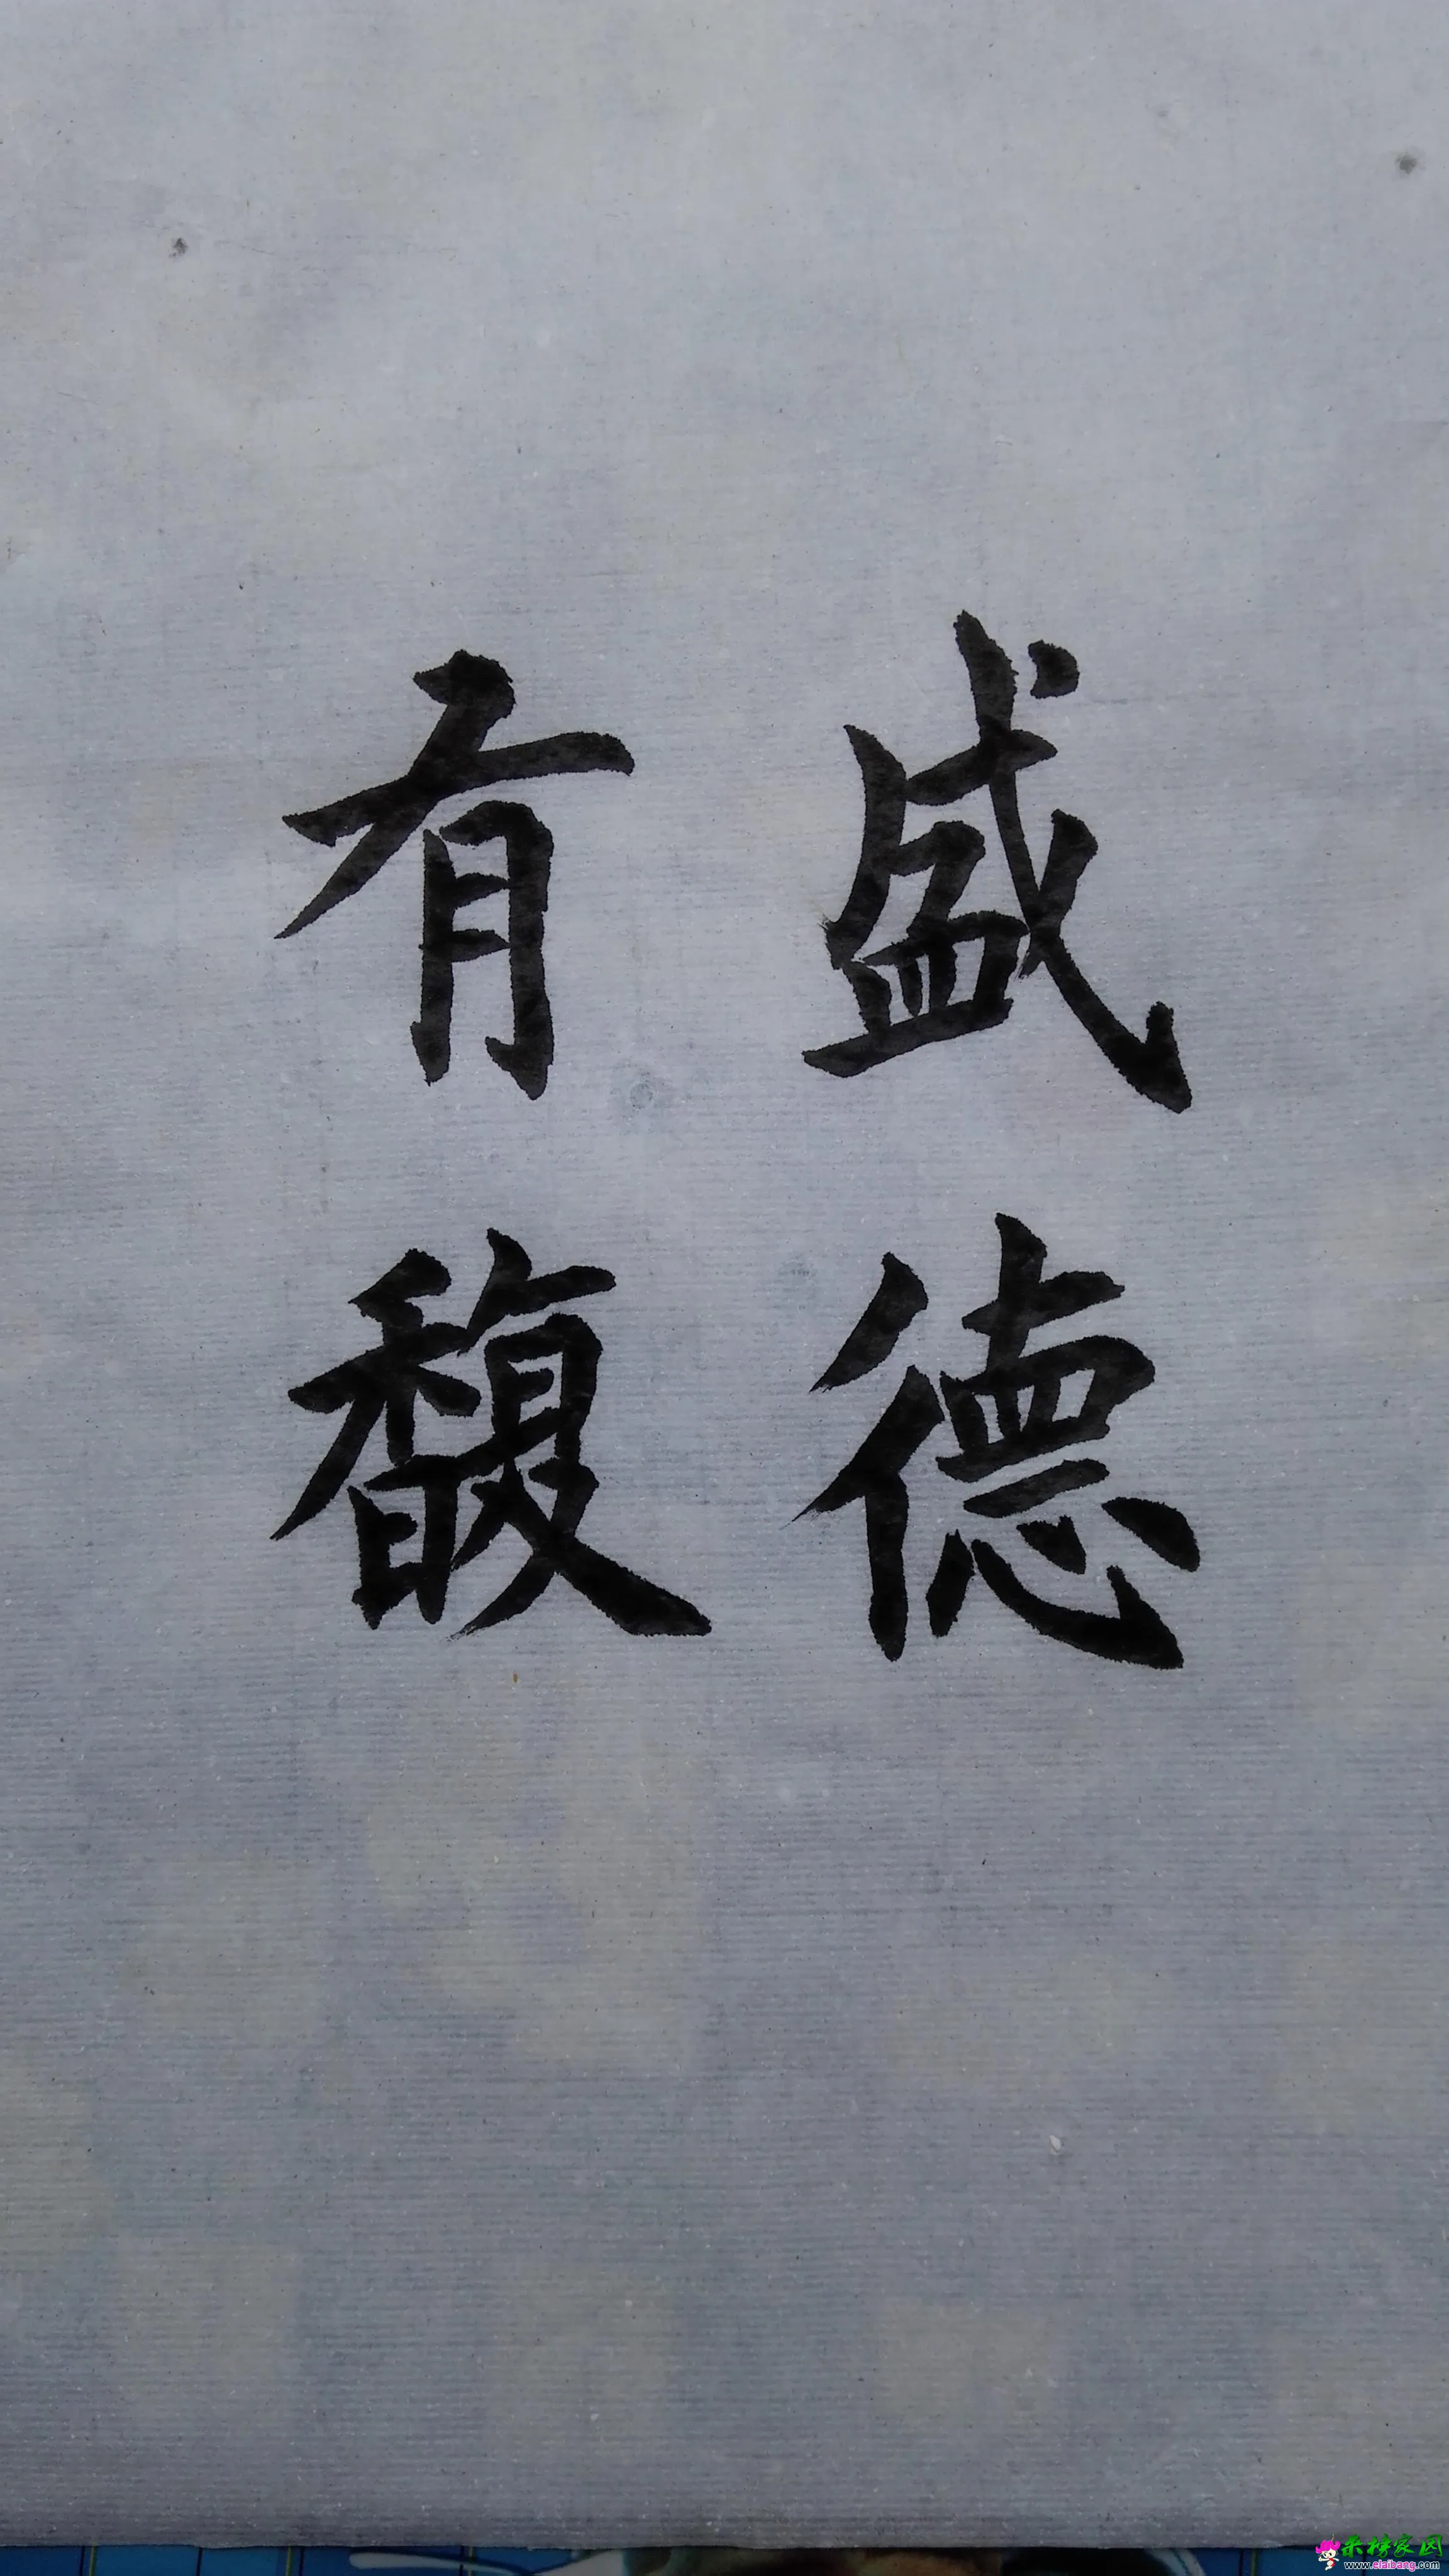 盛德
有馥
来榜家园
www.elaibang.com